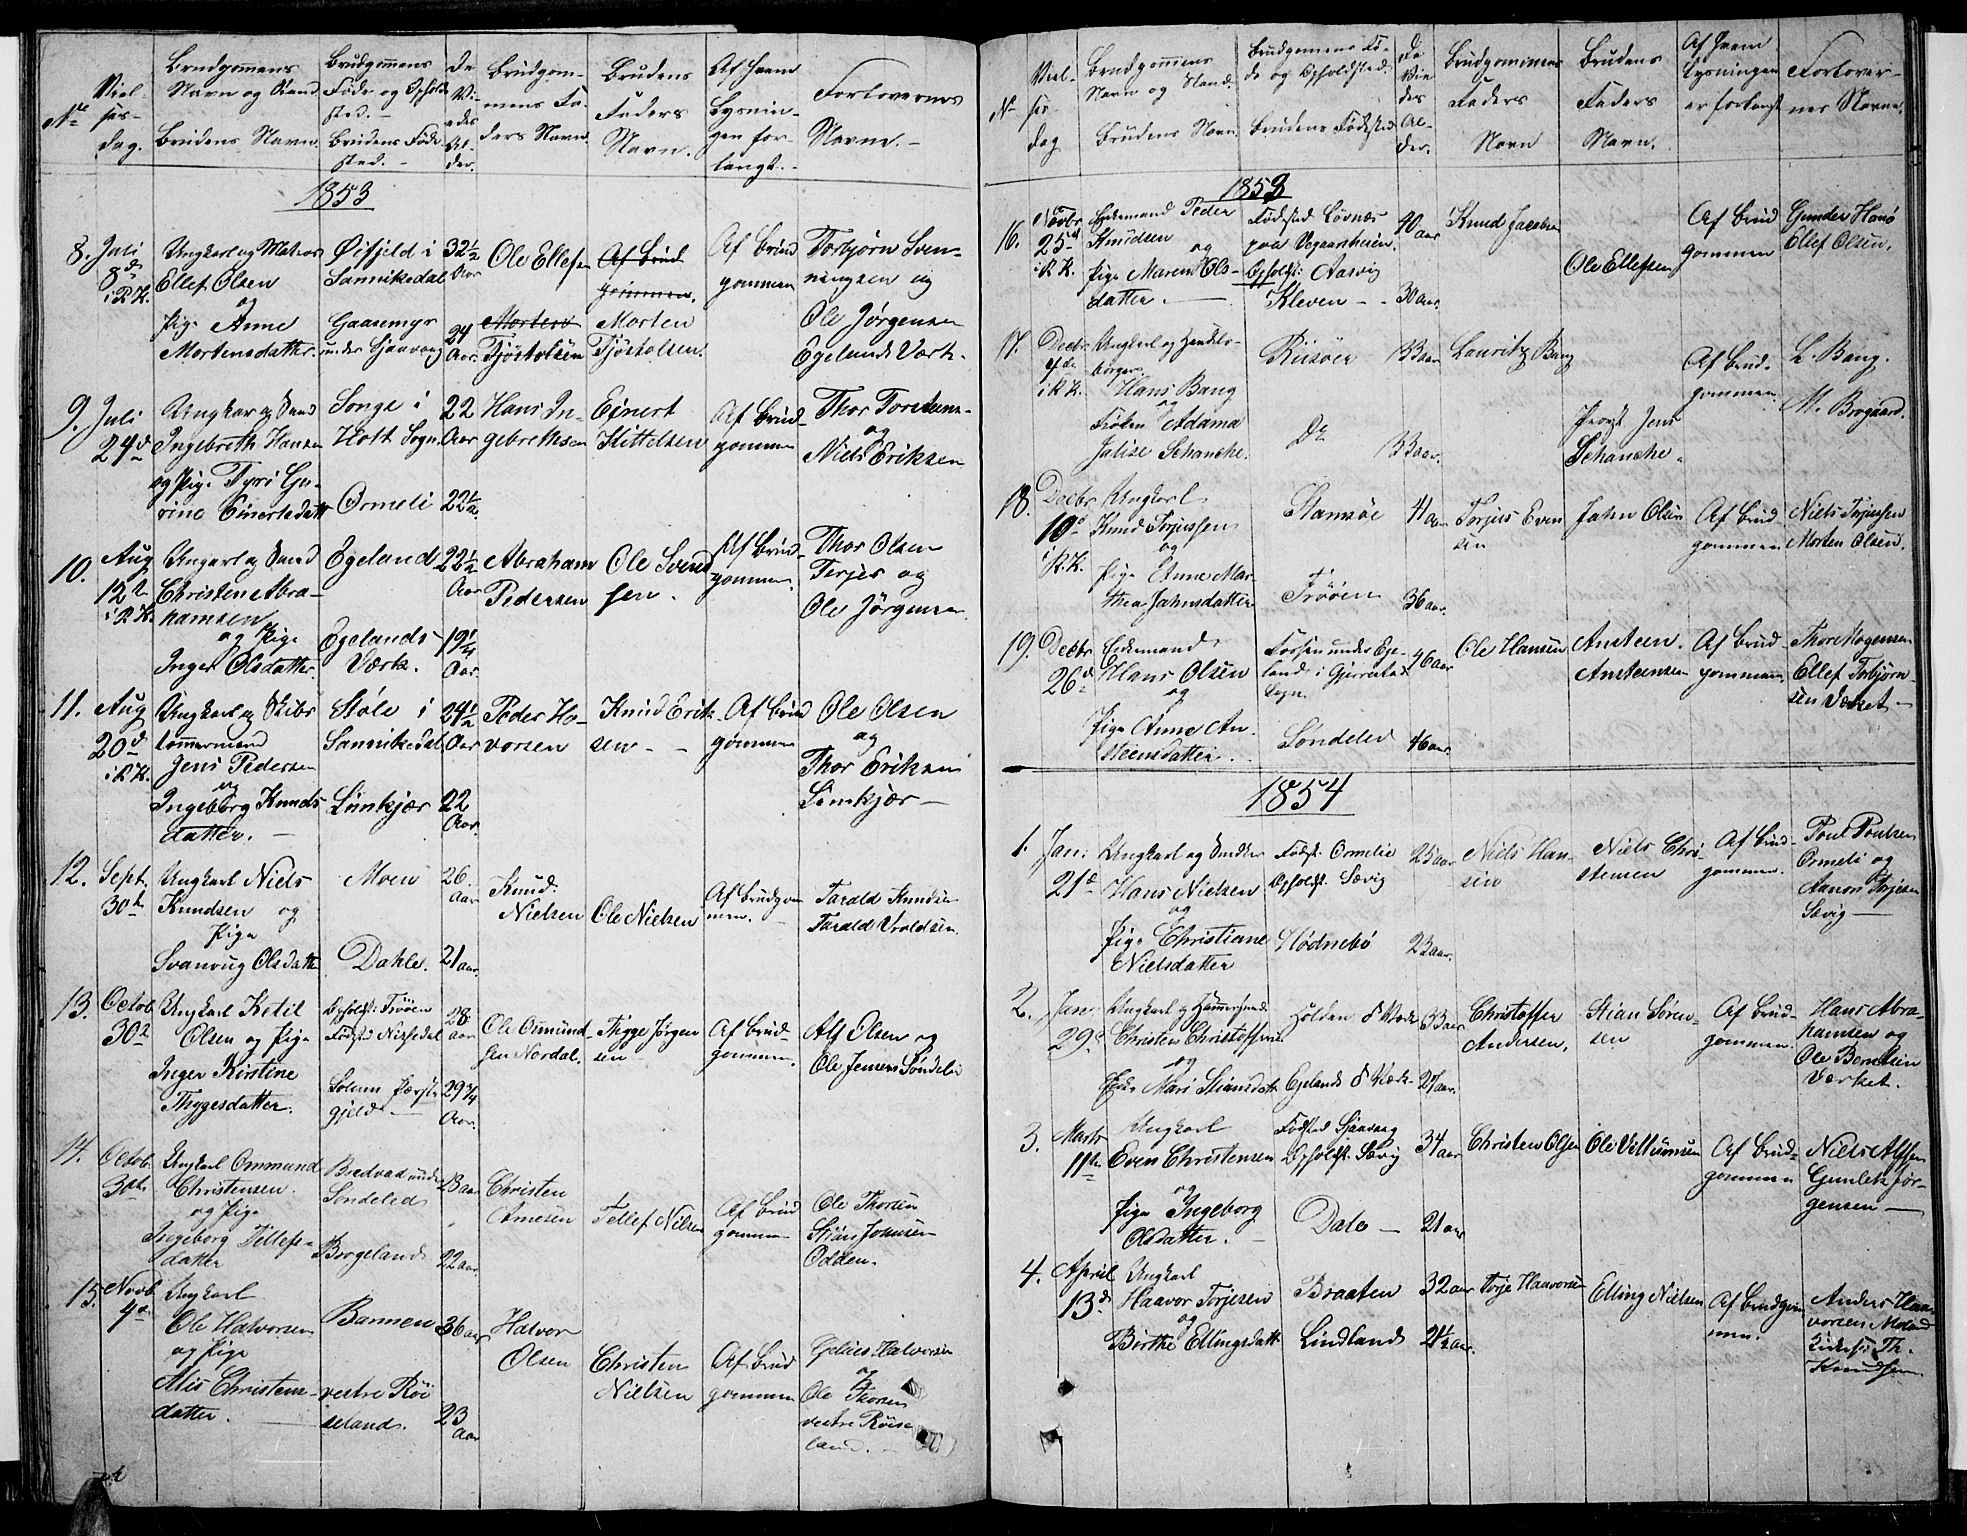 No
Viel-
ses-
dag.
Brudgommens
Navn og Stand
Brudens Navn.
Brudgommens
Føde og Opholds
sted. -
Brudens Føde
sted. -
De
Vi
edes
Al-
der.
Brudgom-
mens Fa-
ders Navn.
Brudens
Faders
Navn.
Af hvem
Lysnin-
gen for-
langt. -
Forlovernes
Navne. -
1853
8. Juli
8d
i R. K.
Ungkarl og Matros
Ellef Olsen
og
Pige Anne
Mortensdatter.
Øifjeld i
Sannikedal
Gaasemyr
under Sjaavaag
32½
Aar
24
Aar.
Ole Ellefsen
Morten
Tjöstolsen
Af Brud
gommen.
Morten
Tjöstolsen.
Af Brud
gommen
Torbjørn Sven-
ningsen og
Ole Jørgensen
Egelands Værk.
9. Juli
24d
Ungkar og Smed
Ingebreth Hansen
og Pige Tyri Gu-
rine Einertsdatt
Songe i
Holt Sogn.
Ormeli
22
Aar
22½
a.
Hans In-
gebrethsen
Einert
Kittelsen
Af Brud-
gommen
Thor Torstens-
og
Niels Eriksen
10. Aug
12te
i R. K.
Ungkarl og Smed
Christen Abra-
hamsen
og Pige
Inger Olsdatter.
Egeland
Egelands
Værk.
22½
Aar
19¼
Aar.
Abraham
Pedersen
Ole Svend
sen.
Af Brud-
gommen
Thor Olsen
Terjes og
Ole Jörgensen
11. Aug
20d
i R. K.
Ungkarl og Skibs
tømmermand
Jens Pedersen
og
Ingeborg Knuds
datter. -
Støle i
Sannikedal
Limkjær
24½
Aar
22
Aar.
Peder Ho-
vorsen
Knud Erik-
sen -
Af Brud
gommen
Ole Olsen
og
Thor Eriksen
Limkjær -
12. Sept.
30te
Ungkarl Niels
Knudsen og
Pige
Svanvug Olsdatte
Moen
Dahle.
26.
Aar
21 aar.
Knud
Nielsen
Ole Nielsen
Af Brudgom
men. -
Tarald Knudsen
Tarald Vraldsen.
13. Octob.
30te
Ungkarl Ketil
Olsen og Pige
Inger Kirstine
Thygesdatter.
Opholdst: Trøen
Fødst: Nissedal
Solum Præste
gjeld. -
28
aar
29¾
Aar.
Ole Osmund
sen Nordal.
Tygge Jörgen
sen -
Af Brud-
gommen.
Alf Olsen og
Ole Jensen Söndeled
14. Octob.
30te
Ungkarl Ommund
Christensen
og Pige
Ingeborg Tellefs-
datter
Bredvad under
Söndeled
Borgeland
28 aar
22 aar.
Christen
Arnesen
Tellef Nilsen
Af Brud
gommen
Ole Thorsen
Stian Johnsen
Odden.
15. Novb
4de
Ungkarl
Ole Halvorsen
og Pige
Alis Christens-
datter.
Bannen
vestre Röi
seland.
36 aar
23
Aar
Halvor
Olsen
Christen
Nielsen
Af Brud
gommen
Gjeruls Halvorsen
og
Ole Thorsen
vestre Röise
land. -
No
Viel-
ses
dag
Brudgommens
Navn og Stand.
Brudens Navn.
Brudgommens Fø-
de og Opholdssted.
Brudens Födested
De
Vie
des
Al-
der.
Brudgommens
Faders
Navn
Brudens
Faders
Navn.
Af hvem
Lysningen
er forlangt
Forlover-
nes Navne.
1853
16. Novbr
25de
i R. K.
Enkemand Peder
Knudsen
og
Pige Maren Ols-
datter. -
Fødested Lövnæs
paa Vegaarsheien.
Opholdst: Aasvig
Kleven - -
40 aar
30 aar.
Knud Jacobsen
Ole Ellefsen
Af Brud
gommen
Gunder Hansö
Ellef Olsen.
17. Decbr
4de
i R. K.
Ungkarl og Handels-
borger
Hans Bang
og
Frøken Adama
Jalise Schanche.
Riisöer
Do
33 aar
33 aar.
Lauritz Bang
Provst Jens
Schanche.
Af Brud-
gommen.
L. Bang.
M. Brogaard.
18. Decbr
10d
i R. K.
Ungkarl
Knud Torjussen
og
Pige Anne Mar-
thea Jahnsdatter
Stamsöe
Tröen
41 aar
36 aar.
Torjus Even
sen
Jahn Olsen
Af Brud
gommen
Niels Torjussen
Morten Olsen.
19. Decbr
26d
Enkemand
Hans Olsen
og
Pige Anne An-
steensdatter.
Forsen under Ege-
land i Gjerrestad
Sogn.
Söndeled
46 aar
46 aar.
Ole Hansen
Ansteen
Ansteensen
Af Brud
gommen
Thore Mogensen
Ellef Torbjørn-
sen Værket -
1854
1. Jan:
21d
Ungkarl og Snedker
Hans Nielsen
og
Pige Christiane
Nielsdatter
Fødst: Ormelie
Opholdst: Sævig
Hödnebö
25 aar
23 aar.
Niels Han-
sen
Niels Chri-
stensen
Af Brud-
gommen.
Poul Poulsen
Ormeli og
Aanon Terjesen
Sævig -
2. Jan:
29d
Ungkarl og Hammersmed
Christen Christoffersen
og
Enke Mari Stiansdatt
Holden s Værk
Egelands s Værk
33 aar
27 aar.
Christoffer
Andersen,
Stian Sören-
sen
Af Brud-
gommen.
Hans Abra-
hamsen og
Ole Berntsen
Værket.
3. Marts
11te
Ungkarl
Even Christensen
og
Pige Ingeborg
Olsdatter.
Födsted Sjaavaag
Opholdst: Sævig
Dale -
34 aar
21 aar
Christen Olsen
Ole Villumsen
Af Brud-
gommen
Niels Alfsen
Gunlek Jör-
gensen -
4. April
13d
Ungkarl
Haavor Torjesen
og
Birthe Ellingsdatt
Braaten
Lindland
32 aar
21½ aar.
Torje Haavorsen
Elling Nielsen
Af Brudgom
men.
Anders Haa-
vorsen Moland
Th.
Knudsen.